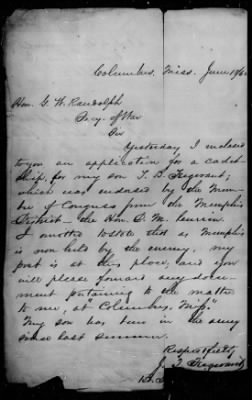 Columbus, Miss. June
Hon. G. W. Randolph
Secy. of War
Sir
Yesterday I inclosed
to you an application for a cadet
ship, for my son T. B.
which was endorsed by the Mem
ber of Congress from the Memphis
District – the Hon. 
I omitted to state that as Memphis
is now held by the enemy, my
post is at this place, and you
will please forward any docu
ment pertaining to the matter
to me, at "Columbus, Miss."
My son has been in the army
since last summer.
Respectfully